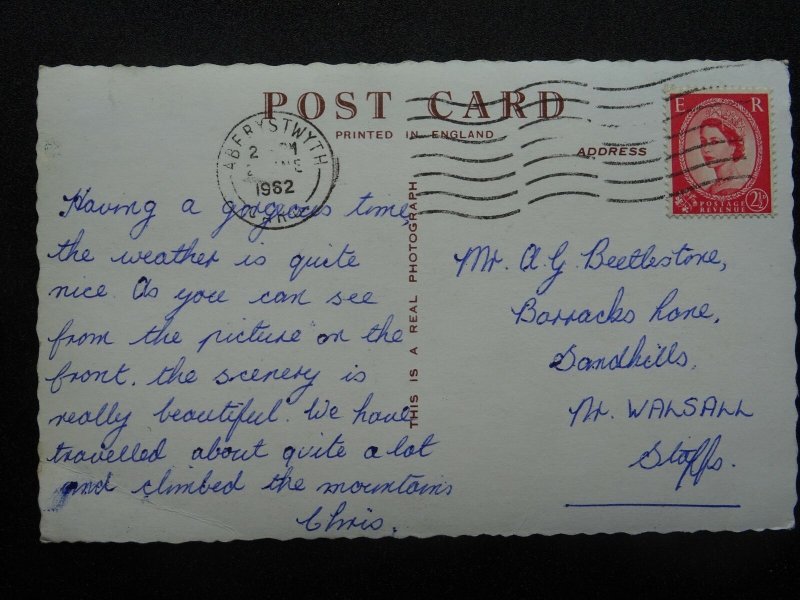 POST CARD
PRINTED IN ENGLAND
ADDRESS
THIS IS A REAL PHOTOGRAPH
E R
2½D
POSTAGE
REVENUE
ABERYSTWYTH
2
1962
Having a gorgeous time,
the weather is quite
nice. As you can see
from the picture on the
front, the scenery is
really beautiful. We have
travelled about quite a lot
and climbed the mountains
Chris.
Mr. A. G. Beetlestone,
Barracks Lane,
Sandhills,
Nr. WALSALL
Staffs.